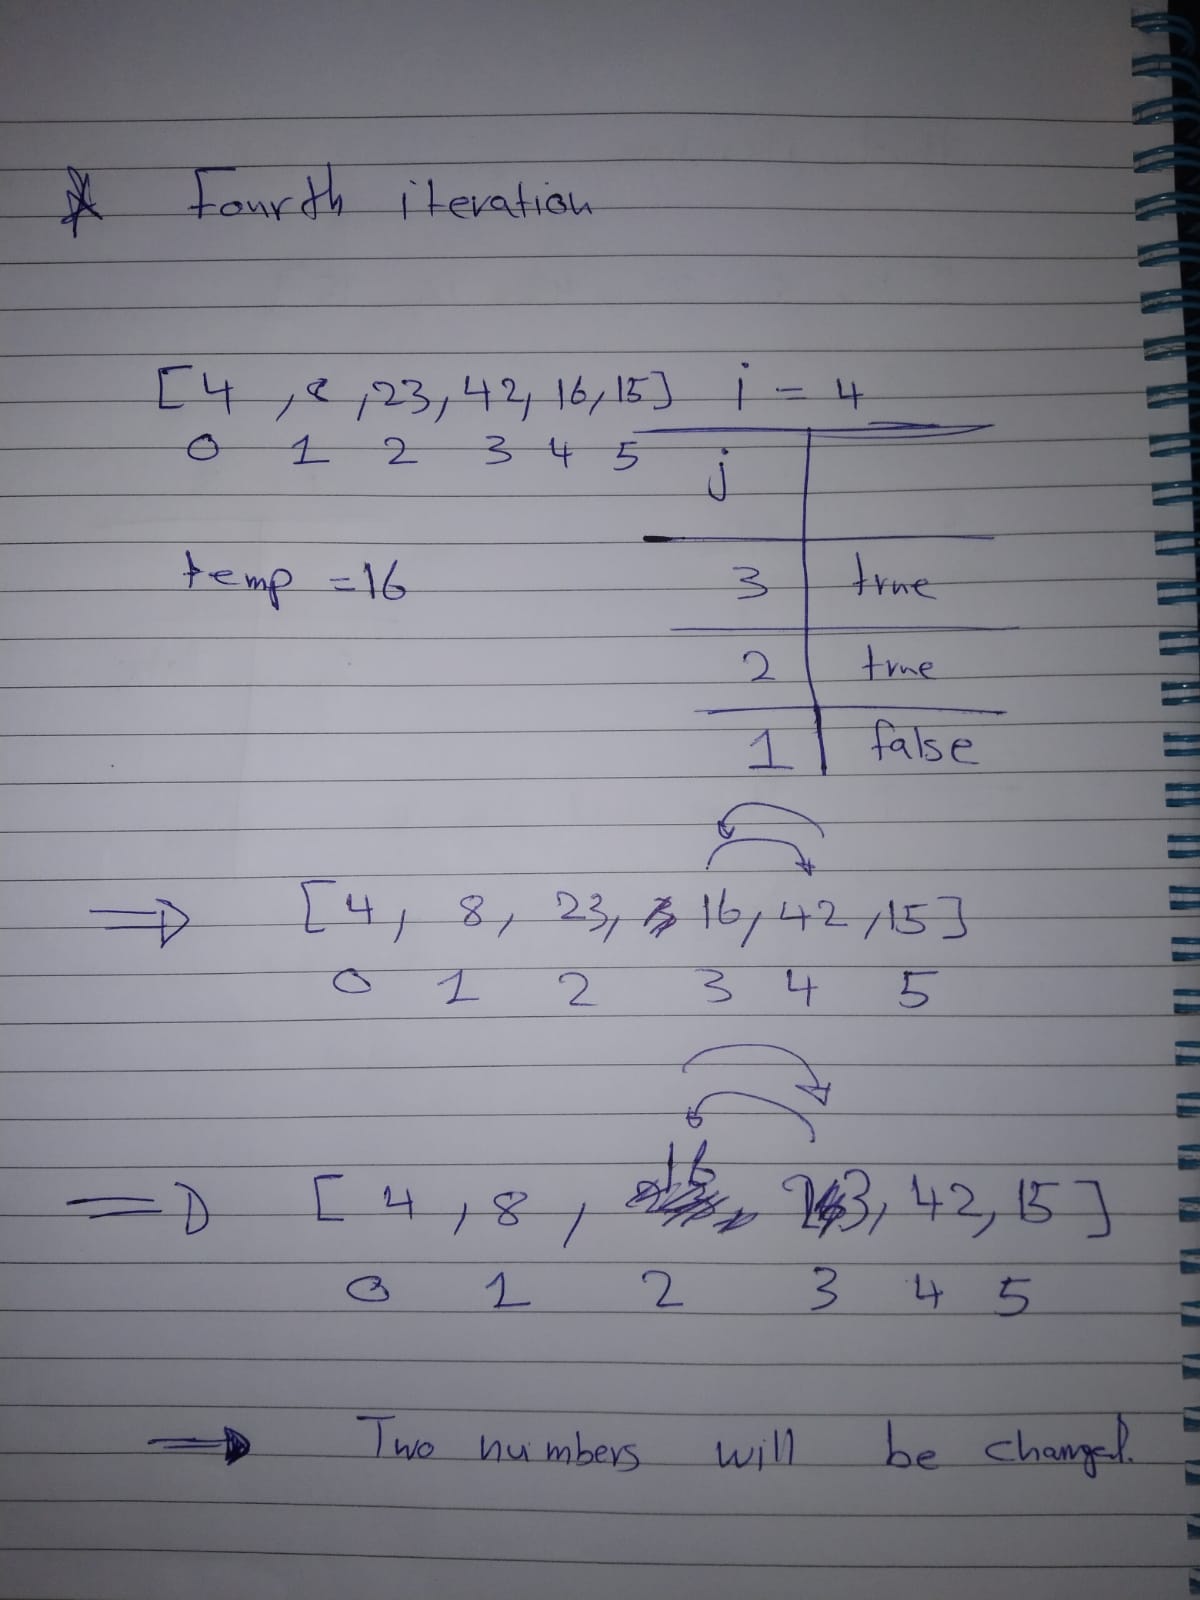 Fourth iteration
[4 , 8 , 23, 42, 16, 15] i = 4
0 1 2 3 4 5
j
temp = 16
3 true
2 true
1 false
[4, 8, 23, 16, 42, 15]
0 1 2 3 4 5
[4, 8, 16 23, 42, 15]
0 1 2 3 4 5
Two numbers will be changed.